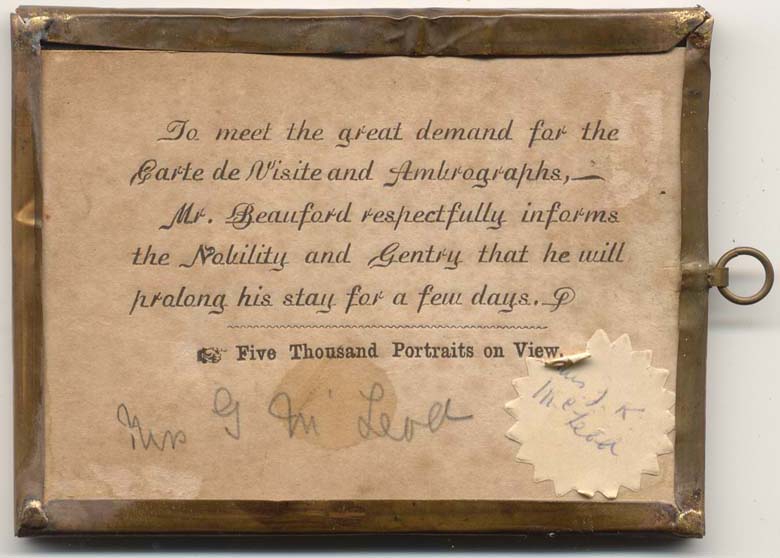 To meet the great demand for the
Carte de Visite and Ambrographs,—
Mr. Beauford respectfully informs
the Nobility and Gentry that he will
prolong his stay for a few days.
☞ Five Thousand Portraits on View.
Mrs G McLeod
J. K
McLeod